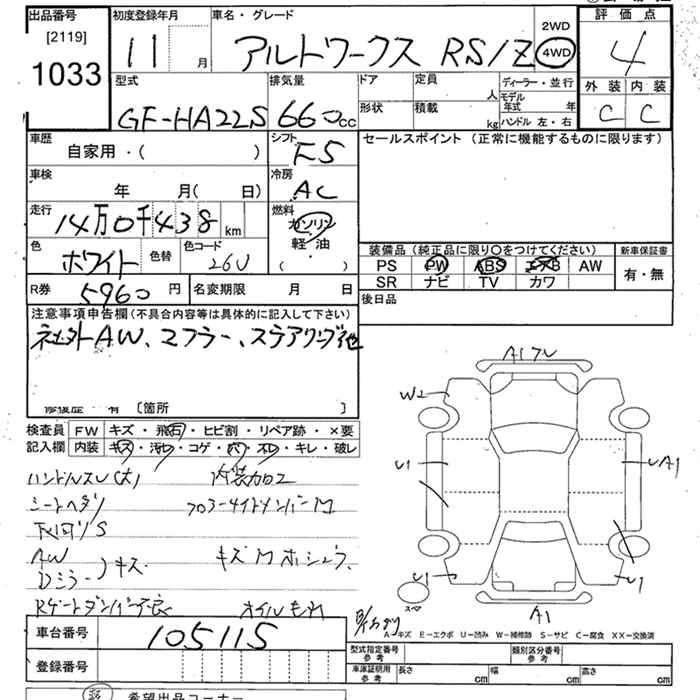 出品番号 初度登録年月 車名・グレード 評価点
[2119] 1033 11 月 アルトワークス RS/Z 2WD 4WD 4
型式 排気量 ドア 定員 人 ディーラー・並行 外装 内装
GF-HA22S 660cc 形状 積載 kg モデル年式 年 ハンドル 左・右 C C
車歴 シフト セールスポイント (正常に機能するものに限ります)
自家用・( ) F5
車検 冷房
年 月( 日) AC
走行 燃料
14万0千438 km ガソリン
軽・油
( )
色 ホワイト 色替 色コード 26U
装備品 (純正品に限り○をつけてください) 新車保証書
PS PW ABS エアB AW 有・無
SR ナビ TV カワ
R券 5960 円 名変期限 月 日 後日品
注意事項申告欄(不具合内容等は具体的に記入して下さい)
社外AW、マフラー、ステアリング他
修復歴 有 〔箇所 〕
検査員 FW キズ・飛石・ヒビ割・リペア跡・×要
記入欄 内装 キズ・汚れ・コゲ・穴・スレ・キレ・破レ
ハンドルスレ(大) 内装加工
シートヘタリ フロアーサイドメンバーM
下回りS
AW キズ
Dミラー キズM ホシュウ
Rゲートダンパー不良 オイルもれ
A1
W2
U1
UA1
U1
U1
スペ
A1
A－キズ E－エクボ U－凹み W－補修跡 S－サビ C－腐食 XX－交換済
車台番号 105115
登録番号
型式指定番号 参考 類別区分番号 参考
車庫証明用 参考 長さ cm 幅 cm 高さ cm
希望出品コーナー